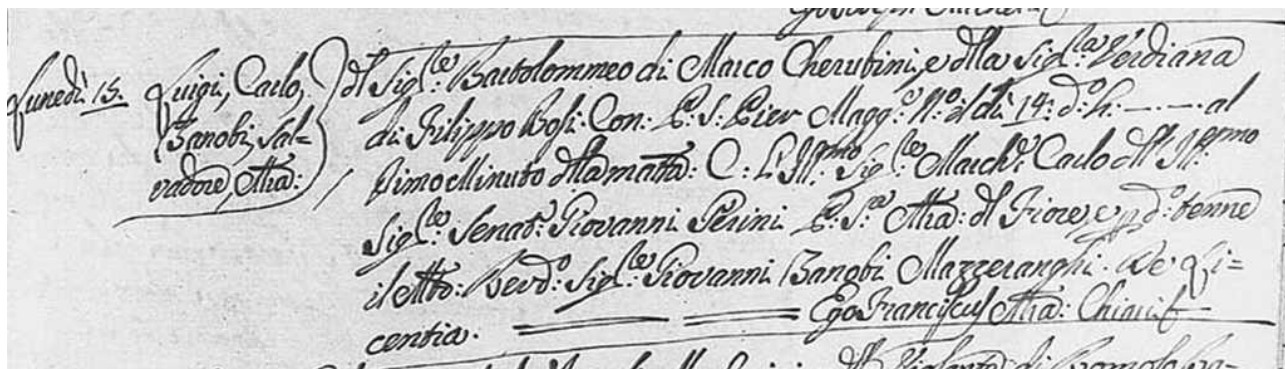 Lunedì 15. Luigi, Carlo, del Sig.re: Bartolommeo di Marco Cherubini, e della Sig.ra: Verdiana
Zanobi, Sal= di Filippo Bosi. Con: P: S: Pier Magg.e N.o il dì 14: d.o h. —.—. al
vadore, Ma: / Pimo Minuto della matta: C: L'Ill.mo Sig.re March.e Carlo dell' Ill.mo
Sig.re: Senat.e Giovanni Perini P: S.a Ma: del Fiore, e p d.o: tenne
il Mto: Revd.o: Sig.re: Giovanni Zanobi Mazzeranghi. De Li=
centia. Ego Franciscus Ma: